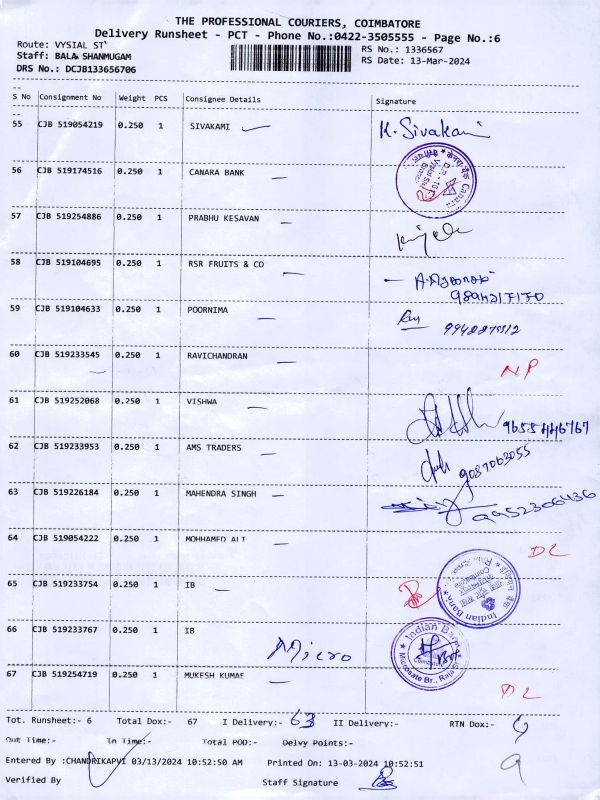 THE PROFESSIONAL COURIERS, COIMBATORE
Delivery Runsheet - PCT - Phone No.:0422-3505555 - Page No.:6
Route: VYSIAL ST
Staff: BALA SHANMUGAM
DRS No.: DCJB133656706
RS No.: 1336567
RS Date: 13-Mar-2024
S No Consignment No Weight PCS Consignee Details Signature
55 CJB 519054219 0.250 1 SIVAKAMI K. Sivakami
56 CJB 519174516 0.250 1 CANARA BANK
57 CJB 519254886 0.250 1 PRABHU KESAVAN
58 CJB 519104695 0.250 1 RSR FRUITS & CO
59 CJB 519104633 0.250 1 POORNIMA
60 CJB 519233545 0.250 1 RAVICHANDRAN NP
61 CJB 519252068 0.250 1 VISHWA 9655446767
62 CJB 519233953 0.250 1 AMS TRADERS 9087063055
63 CJB 519226184 0.250 1 MAHENDRA SINGH 9952306436
64 CJB 519054222 0.250 1 MOHHAMED ALI DL
65 CJB 519233754 0.250 1 IB
Indian Bank
66 CJB 519233767 0.250 1 IB Micro
Indian Bank
Microsate Br., Raja St
67 CJB 519254719 0.250 1 MUKESH KUMAE DL
Tot. Runsheet:- 6 Total Dox:- 67 I Delivery:- 63 II Delivery:- RTN Dox:-
Out Time:- In Time:- Total POD:- Delvy Points:-
Entered By :CHANDRIKAPVI 03/13/2024 10:52:50 AM Printed On: 13-03-2024 10:52:51
Verified By Staff Signature